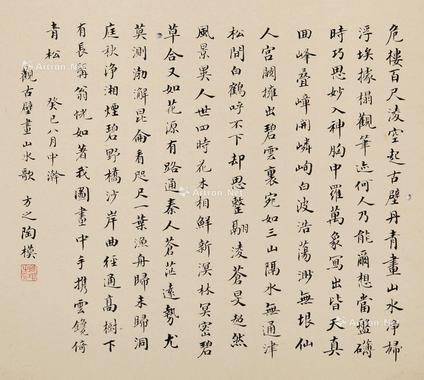 危樓百尺淩空起古壁丹青畫山水淨掃
浮埃據榻觀筆迹何人乃能爾想當盤礴
時巧思妙入神胸中羅萬象寫出皆天真
回峰疊嶂開嶙峋白波浩蕩渺無垠仙
人宮闕擁出碧雲裏宛如三山隔水無通津
松間白鶴呼不下却思整翮淩蒼旻超然
風景異人世四時花木相鮮新溟林冥密碧
草合又如花源有路通秦人蒼茫遠勢尤
莫測渤澥昆侖看咫尺一葉漁舟歸未歸洞
庭秋淨湘煙碧野橋沙岸曲徑通高樹下
有長髯翁恍如著我圖畫中手攜雲鏡倚
青松 癸巳八月中澣
觀古壁畫山水歌 方之陶模